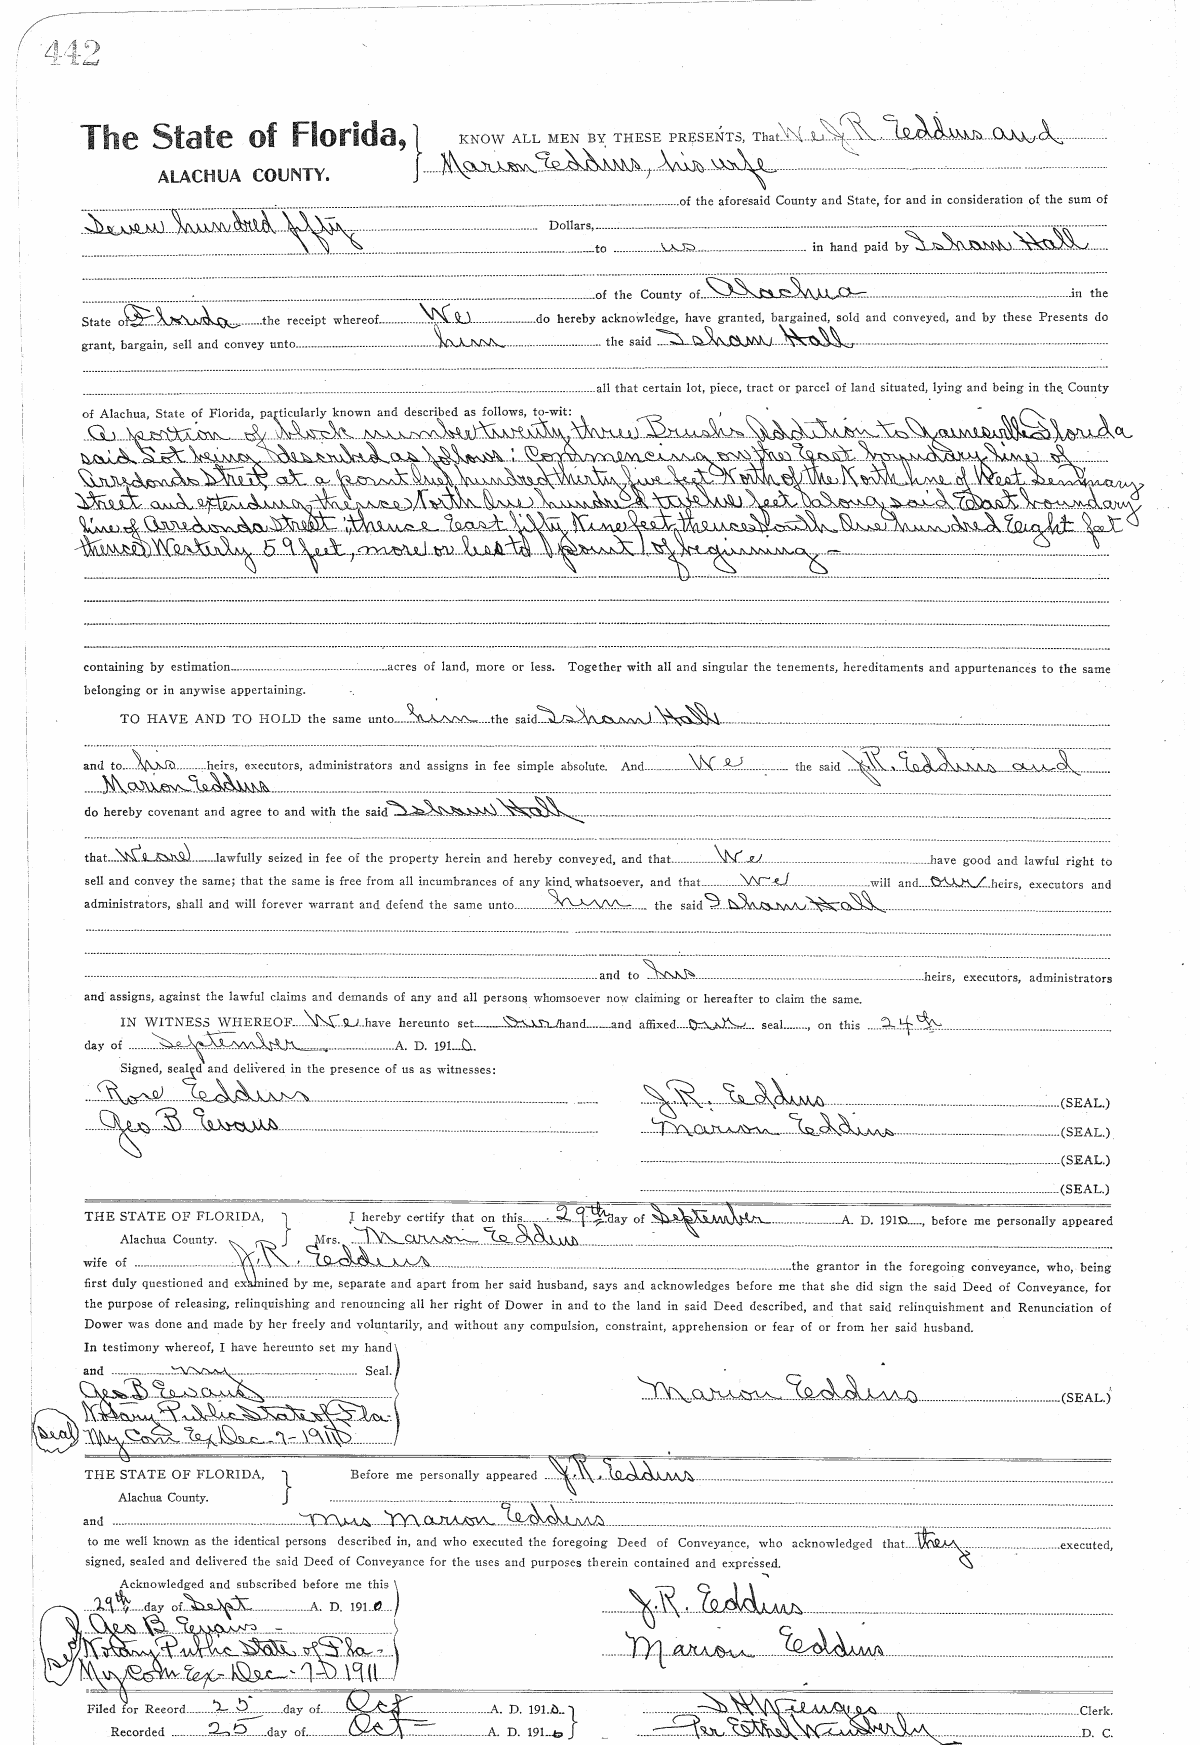 442
The State of Florida, KNOW ALL MEN BY THESE PRESENTS, That We J.R. Eddins and
ALACHUA COUNTY. Marion Eddins, his wife
of the aforesaid County and State, for and in consideration of the sum of
Seven hundred fifty Dollars,
to us in hand paid by Isham Hall
of the County of Alachua in the
State of Florida the receipt whereof We do hereby acknowledge, have granted, bargained, sold and conveyed, and by these Presents do
grant, bargain, sell and convey unto him the said Isham Hall
all that certain lot, piece, tract or parcel of land situated, lying and being in the County
of Alachua, State of Florida, particularly known and described as follows, to-wit:
A portion of block number twenty three Brush's Addition to Gainesville Florida
said Lot being described as follows: Commencing on the East boundary line of
Arredondo Street, at a point hundred thirty five feet North of the North line of West Seminary
Street and extending thence North One hundred twelve feet along said East boundary
line of Arredonda Street; thence East fifty Nine feet, thence South One hundred Eight feet
thence Westerly 59 feet, more or less to point of beginning -
containing by estimation acres of land, more or less. Together with all and singular the tenements, hereditaments and appurtenances to the same
belonging or in anywise appertaining.
TO HAVE AND TO HOLD the same unto him the said Isham Hall
and to his heirs, executors, administrators and assigns in fee simple absolute. And We the said J.R. Eddins and
Marion Eddins
do hereby covenant and agree to and with the said Isham Hall
that We are lawfully seized in fee of the property herein and hereby conveyed, and that We have good and lawful right to
sell and convey the same; that the same is free from all incumbrances of any kind whatsoever, and that We will and our heirs, executors and
administrators, shall and will forever warrant and defend the same unto him the said Isham Hall
and to his heirs, executors, administrators
and assigns, against the lawful claims and demands of any and all persons whomsoever now claiming or hereafter to claim the same.
IN WITNESS WHEREOF We have hereunto set our hand and affixed our seal, on this 24th
day of September A. D. 1910.
Signed, sealed and delivered in the presence of us as witnesses:
Rose Eddins J.R. Eddins (SEAL.)
Geo B Evans Marion Eddins (SEAL.)
(SEAL.)
(SEAL.)
THE STATE OF FLORIDA, I hereby certify that on this 29th day of September A. D. 1910, before me personally appeared
Alachua County. Mrs. Marion Eddins
wife of J.R. Eddins the grantor in the foregoing conveyance, who, being
first duly questioned and examined by me, separate and apart from her said husband, says and acknowledges before me that she did sign the said Deed of Conveyance, for
the purpose of releasing, relinquishing and renouncing all her right of Dower in and to the land in said Deed described, and that said relinquishment and Renunciation of
Dower was done and made by her freely and voluntarily, and without any compulsion, constraint, apprehension or fear of or from her said husband.
In testimony whereof, I have hereunto set my hand
and my Seal.
Geo B Evans Marion Eddins (SEAL.)
Notary Public State of Fla.
seal My Com Ex Dec-7-1911
THE STATE OF FLORIDA, Before me personally appeared J.R. Eddins
Alachua County.
and Mrs Marion Eddins
to me well known as the identical persons described in, and who executed the foregoing Deed of Conveyance, who acknowledged that they executed,
signed, sealed and delivered the said Deed of Conveyance for the uses and purposes therein contained and expressed.
Acknowledged and subscribed before me this
29th day of Sept A. D. 1910 J.R. Eddins
Geo B Evans -
Seal Notary Public State of Fla - Marion Eddins
My Com Ex - Dec - 7 - 1911
Filed for Record 25 day of Oct A. D. 1910 S H Wienges Clerk.
Recorded 25 day of Oct A. D. 1910 Per Ethel Wimberly D. C.